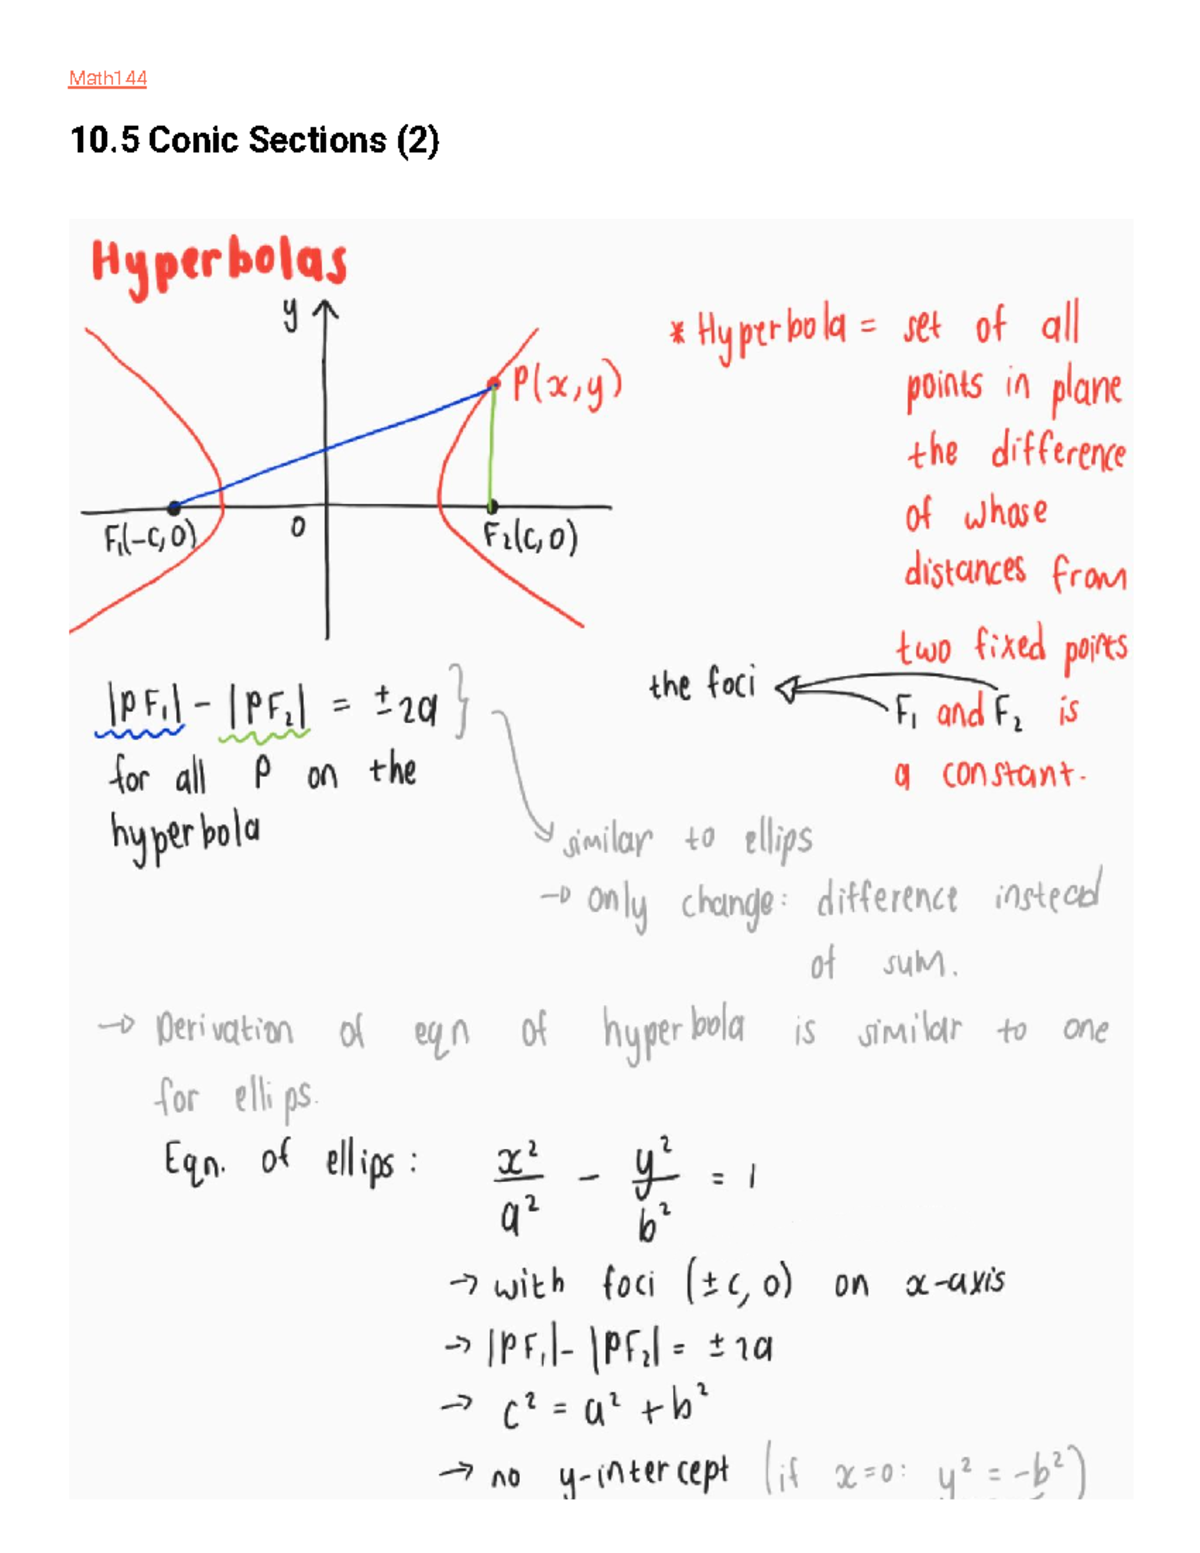 Math144
10.5 Conic Sections (2)
Hyperbolas
y
P(x,y)
F₁(-c,0)
0
F₂(c,0)
* Hyperbola = set of all
points in plane
the difference
of whose
distances from
two fixed points
the foci
F₁ and F₂ is
a constant.
|PF₁| - |PF₂| = ±2a }
for all P on the
hyperbola
similar to ellips
→ only change: difference instead
of sum.
→ Derivation of eqn of hyperbola is similar to one
for ellips.
Eqn. of ellips: x²/a² - y²/b² = 1
→ with foci (±c, 0) on x-axis
→ |PF₁| - |PF₂| = ±2a
→ c² = a² + b²
→ no y-intercept (if x=0: y² = -b²)